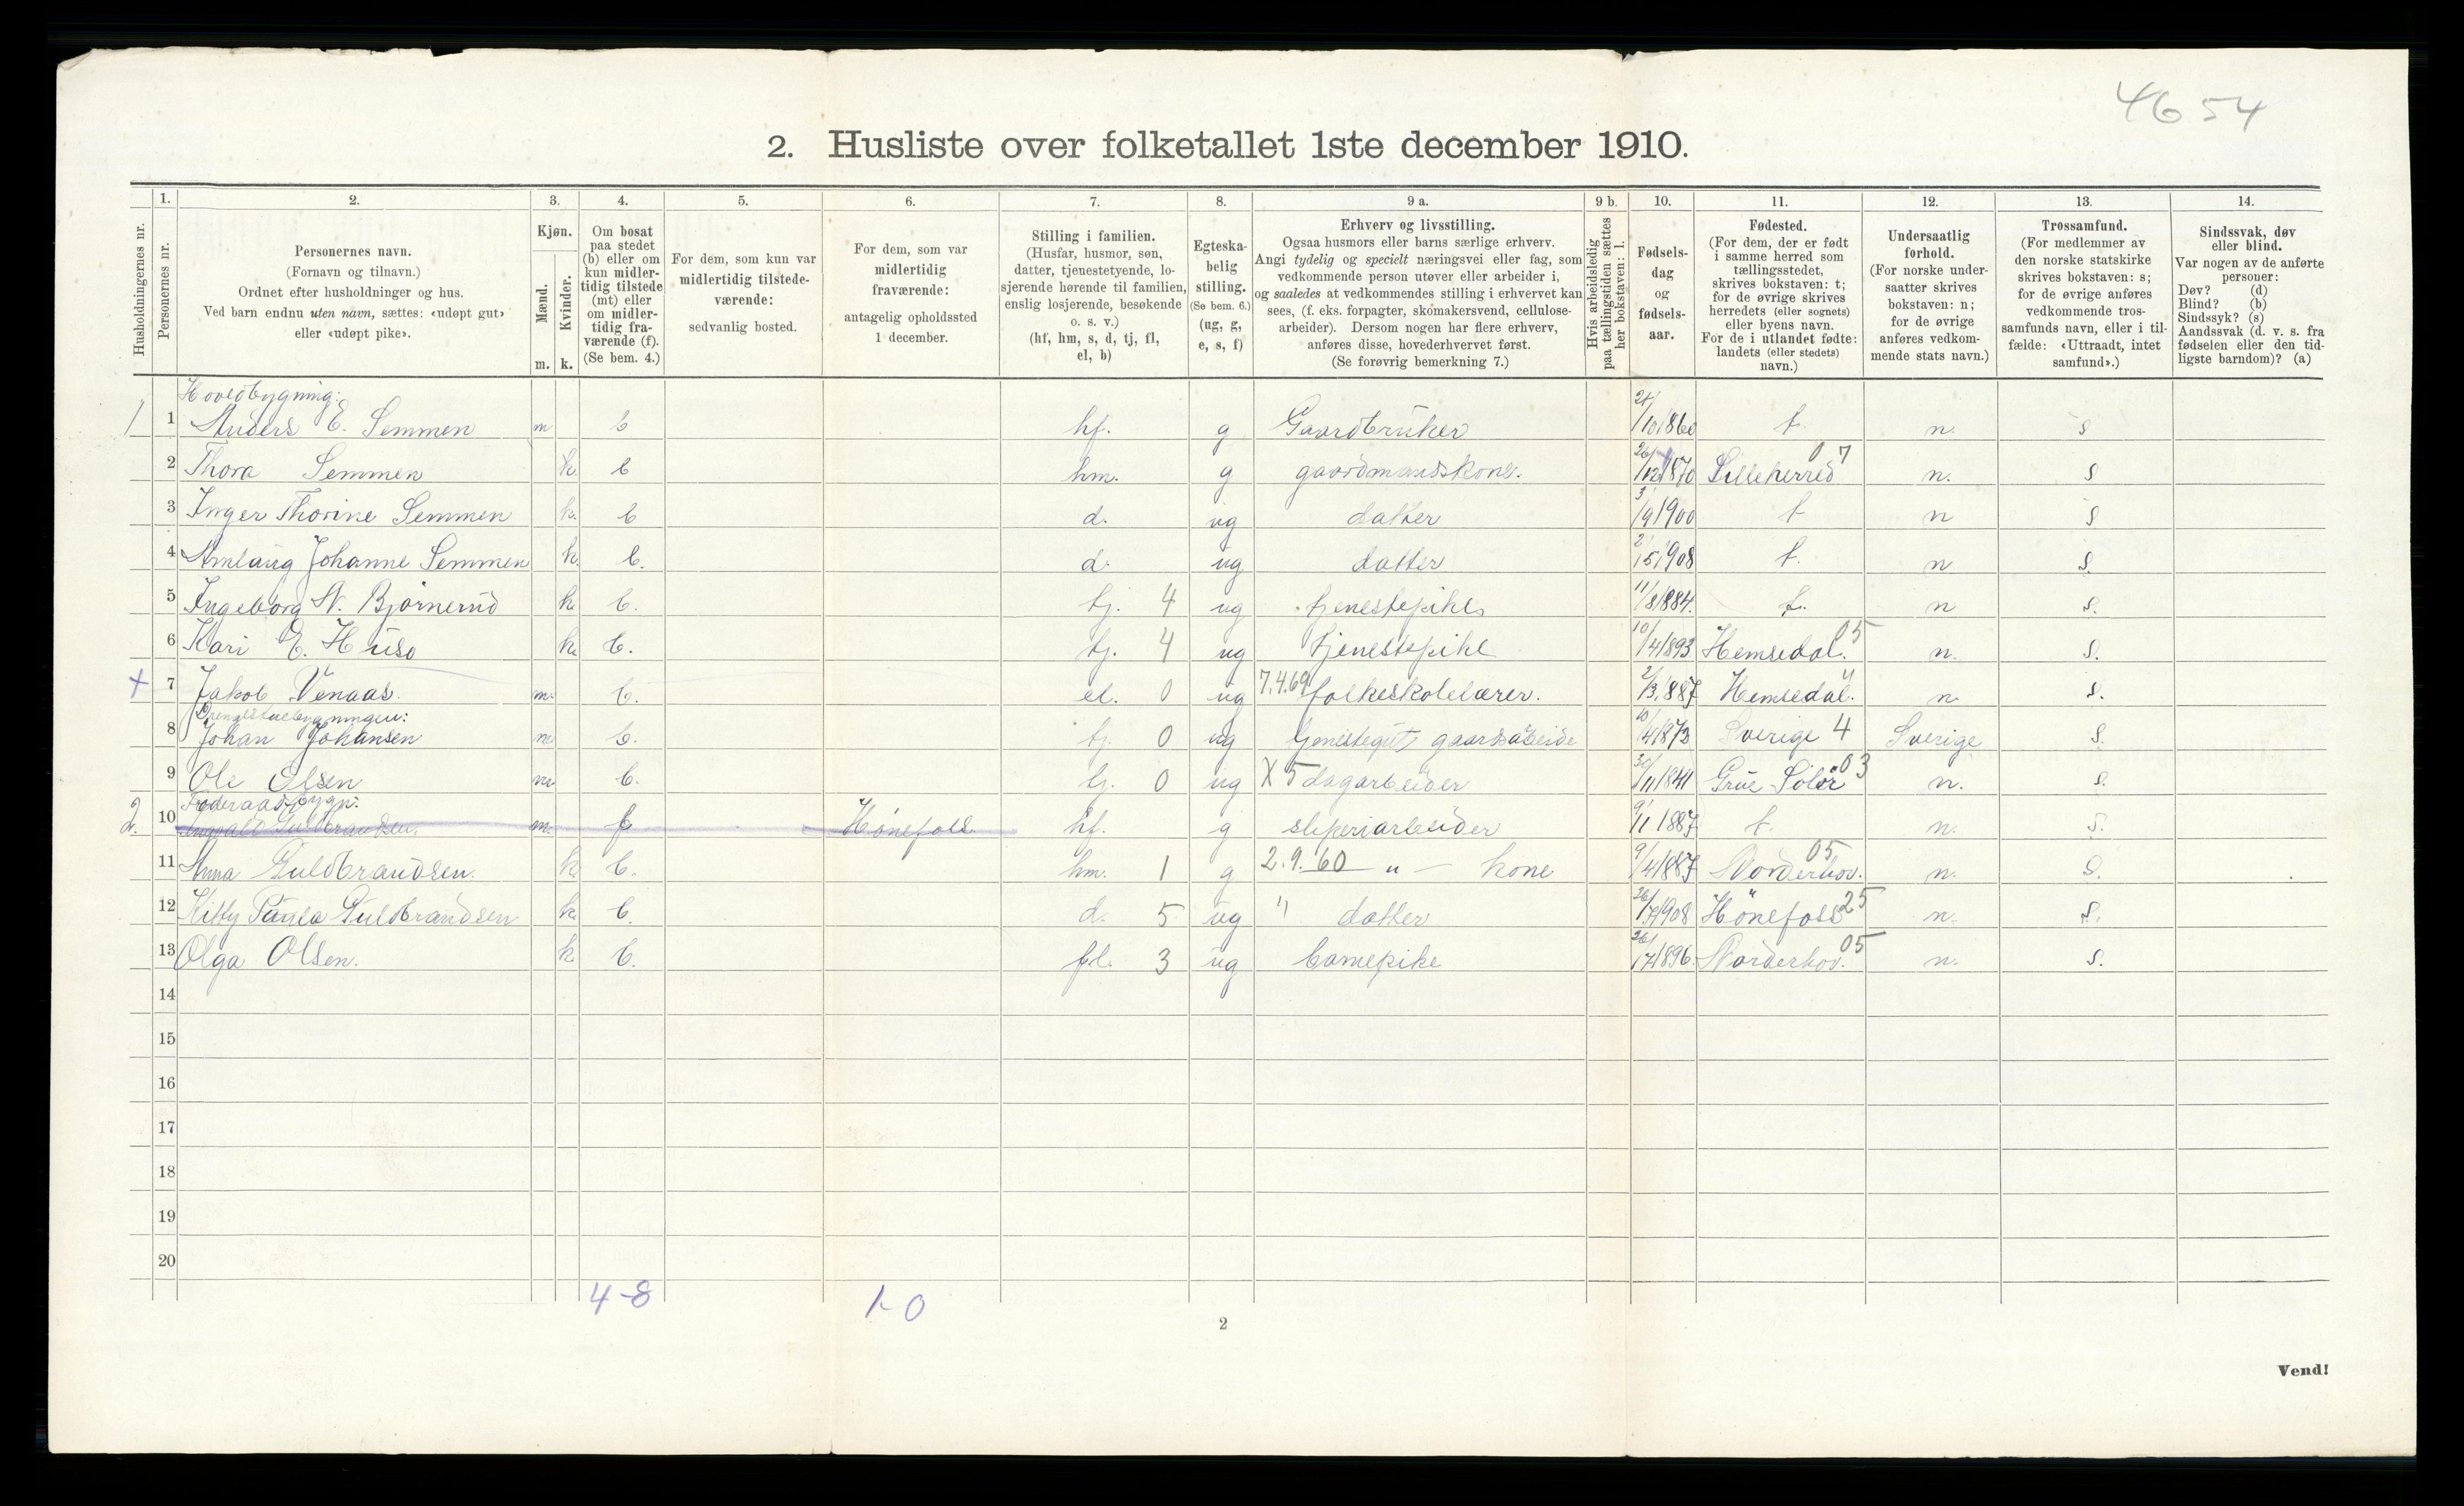 4654
2. Husliste over folketallet 1ste december 1910.
Husholdningernes nr.
1. Personernes nr.
2. Personernes navn.
(Fornavn og tilnavn.)
Ordnet efter husholdninger og hus.
Ved barn endnu uten navn, sættes: «udøpt gut»
eller «udøpt pike».
3. Kjøn.
Mænd. m.
Kvinder. k.
4. Om bosat
paa stedet
(b) eller om
kun midler-
tidig tilstede
(mt) eller
om midler-
tidig fra-
værende (f).
(Se bem. 4.)
5. For dem, som kun var
midlertidig tilstede-
værende:
sedvanlig bosted.
6. For dem, som var
midlertidig
fraværende:
antagelig opholdssted
1 december.
7. Stilling i familien.
(Husfar, husmor, søn,
datter, tjenestetyende, lo-
sjerende hørende til familien,
enslig losjerende, besøkende
o. s. v.)
(hf, hm, s, d, tj, fl,
el, b)
8. Egteska-
belig
stilling.
(Se bem. 6.)
(ug, g,
e, s, f)
9 a. Erhverv og livsstilling.
Ogsaa husmors eller barns særlige erhverv.
Angi tydelig og specielt næringsvei eller fag, som
vedkommende person utøver eller arbeider i,
og saaledes at vedkommendes stilling i erhvervet kan
sees, (f. eks. forpagter, skomakersvend, cellulose-
arbeider). Dersom nogen har flere erhverv,
anføres disse, hovederhvervet først.
(Se forøvrig bemerkning 7.)
9 b. Hvis arbeidsledig
paa tællingstiden sættes
her bokstaven: l.
10. Fødsels-
dag
og
fødsels-
aar.
11. Fødested.
(For dem, der er født
i samme herred som
tællingsstedet,
skrives bokstaven: t;
for de øvrige skrives
herredets (eller sognets)
eller byens navn.
For de i utlandet fødte:
landets (eller stedets)
navn.)
12. Undersaatlig
forhold.
(For norske under-
saatter skrives
bokstaven: n;
for de øvrige
anføres vedkom-
mende stats navn.)
13. Trossamfund.
(For medlemmer av
den norske statskirke
skrives bokstaven: s;
for de øvrige anføres
vedkommende tros-
samfunds navn, eller i til-
fælde: «Uttraadt, intet
samfund».)
14. Sindssvak, døv
eller blind.
Var nogen av de anførte
personer:
Døv? (d)
Blind? (b)
Sindssyk? (s)
Aandssvak (d. v. s. fra
fødselen eller den tid-
ligste barndom)? (a)
Hovedbygning:
1 1 Anders E. Semmen m b hf. g Gaardbruker /10 1860 t. n. s
2 Thora Semmen k. b hm. g gaardmandskone. 26/12 1870 Lilleherred 07 n. s
3 Inger Thorine Semmen k. b d. ug datter 3/9 1900 t n s
4 Amlaug Johanne Semmen k. b. d. ug datter 2/5 1908 t. n s.
5 Ingeborg N. Bjørnerud k. b. tj. 4 ug tjenestepike 11/8 1884. t. n s.
6 Kari E. Huso k. b. tj. 4 ug tjenestepike 10/4 1893 Hemsedal. 05 n. s.
+ 7 Jakob Venaas. m. b. el. 0 ug 7.4.69 folkeskolelærer. 2/3 1887 Hemsedal. " n. s.
Drengestuebygningen:
8 Johan Johansen m b. tj. 0 ug tjenestegut gaardsarbeide 10/4 1873 Sverige 4 Sverige s.
9 Ole Olsen m. b. tj. 0 ug X 5 dagarbeider 30/11 1841 Grue Solør 03 n. s.
2. 10 Guldbrandsen. m. f Hønefoss hf. g sliperiarbeider 9/11 1887 t. n. s.
11 Anna Guldbrandsen. k. b. hm. 1 g 2.9.60 " — kone 9/4 1887 Norderhov. 05 n. s.
12 Kitty Paula Guldbrandsen k. b. d. 5 ug " datter 26/7 1908 Hønefoss 25 n. s.
13 Olga Olsen. k. b. fl. 3 ug barnepike 26/7 1896. Norderhov. 05 n. s.
14
15
16
17
18
19
20
4-8 1-0
2
Vend!